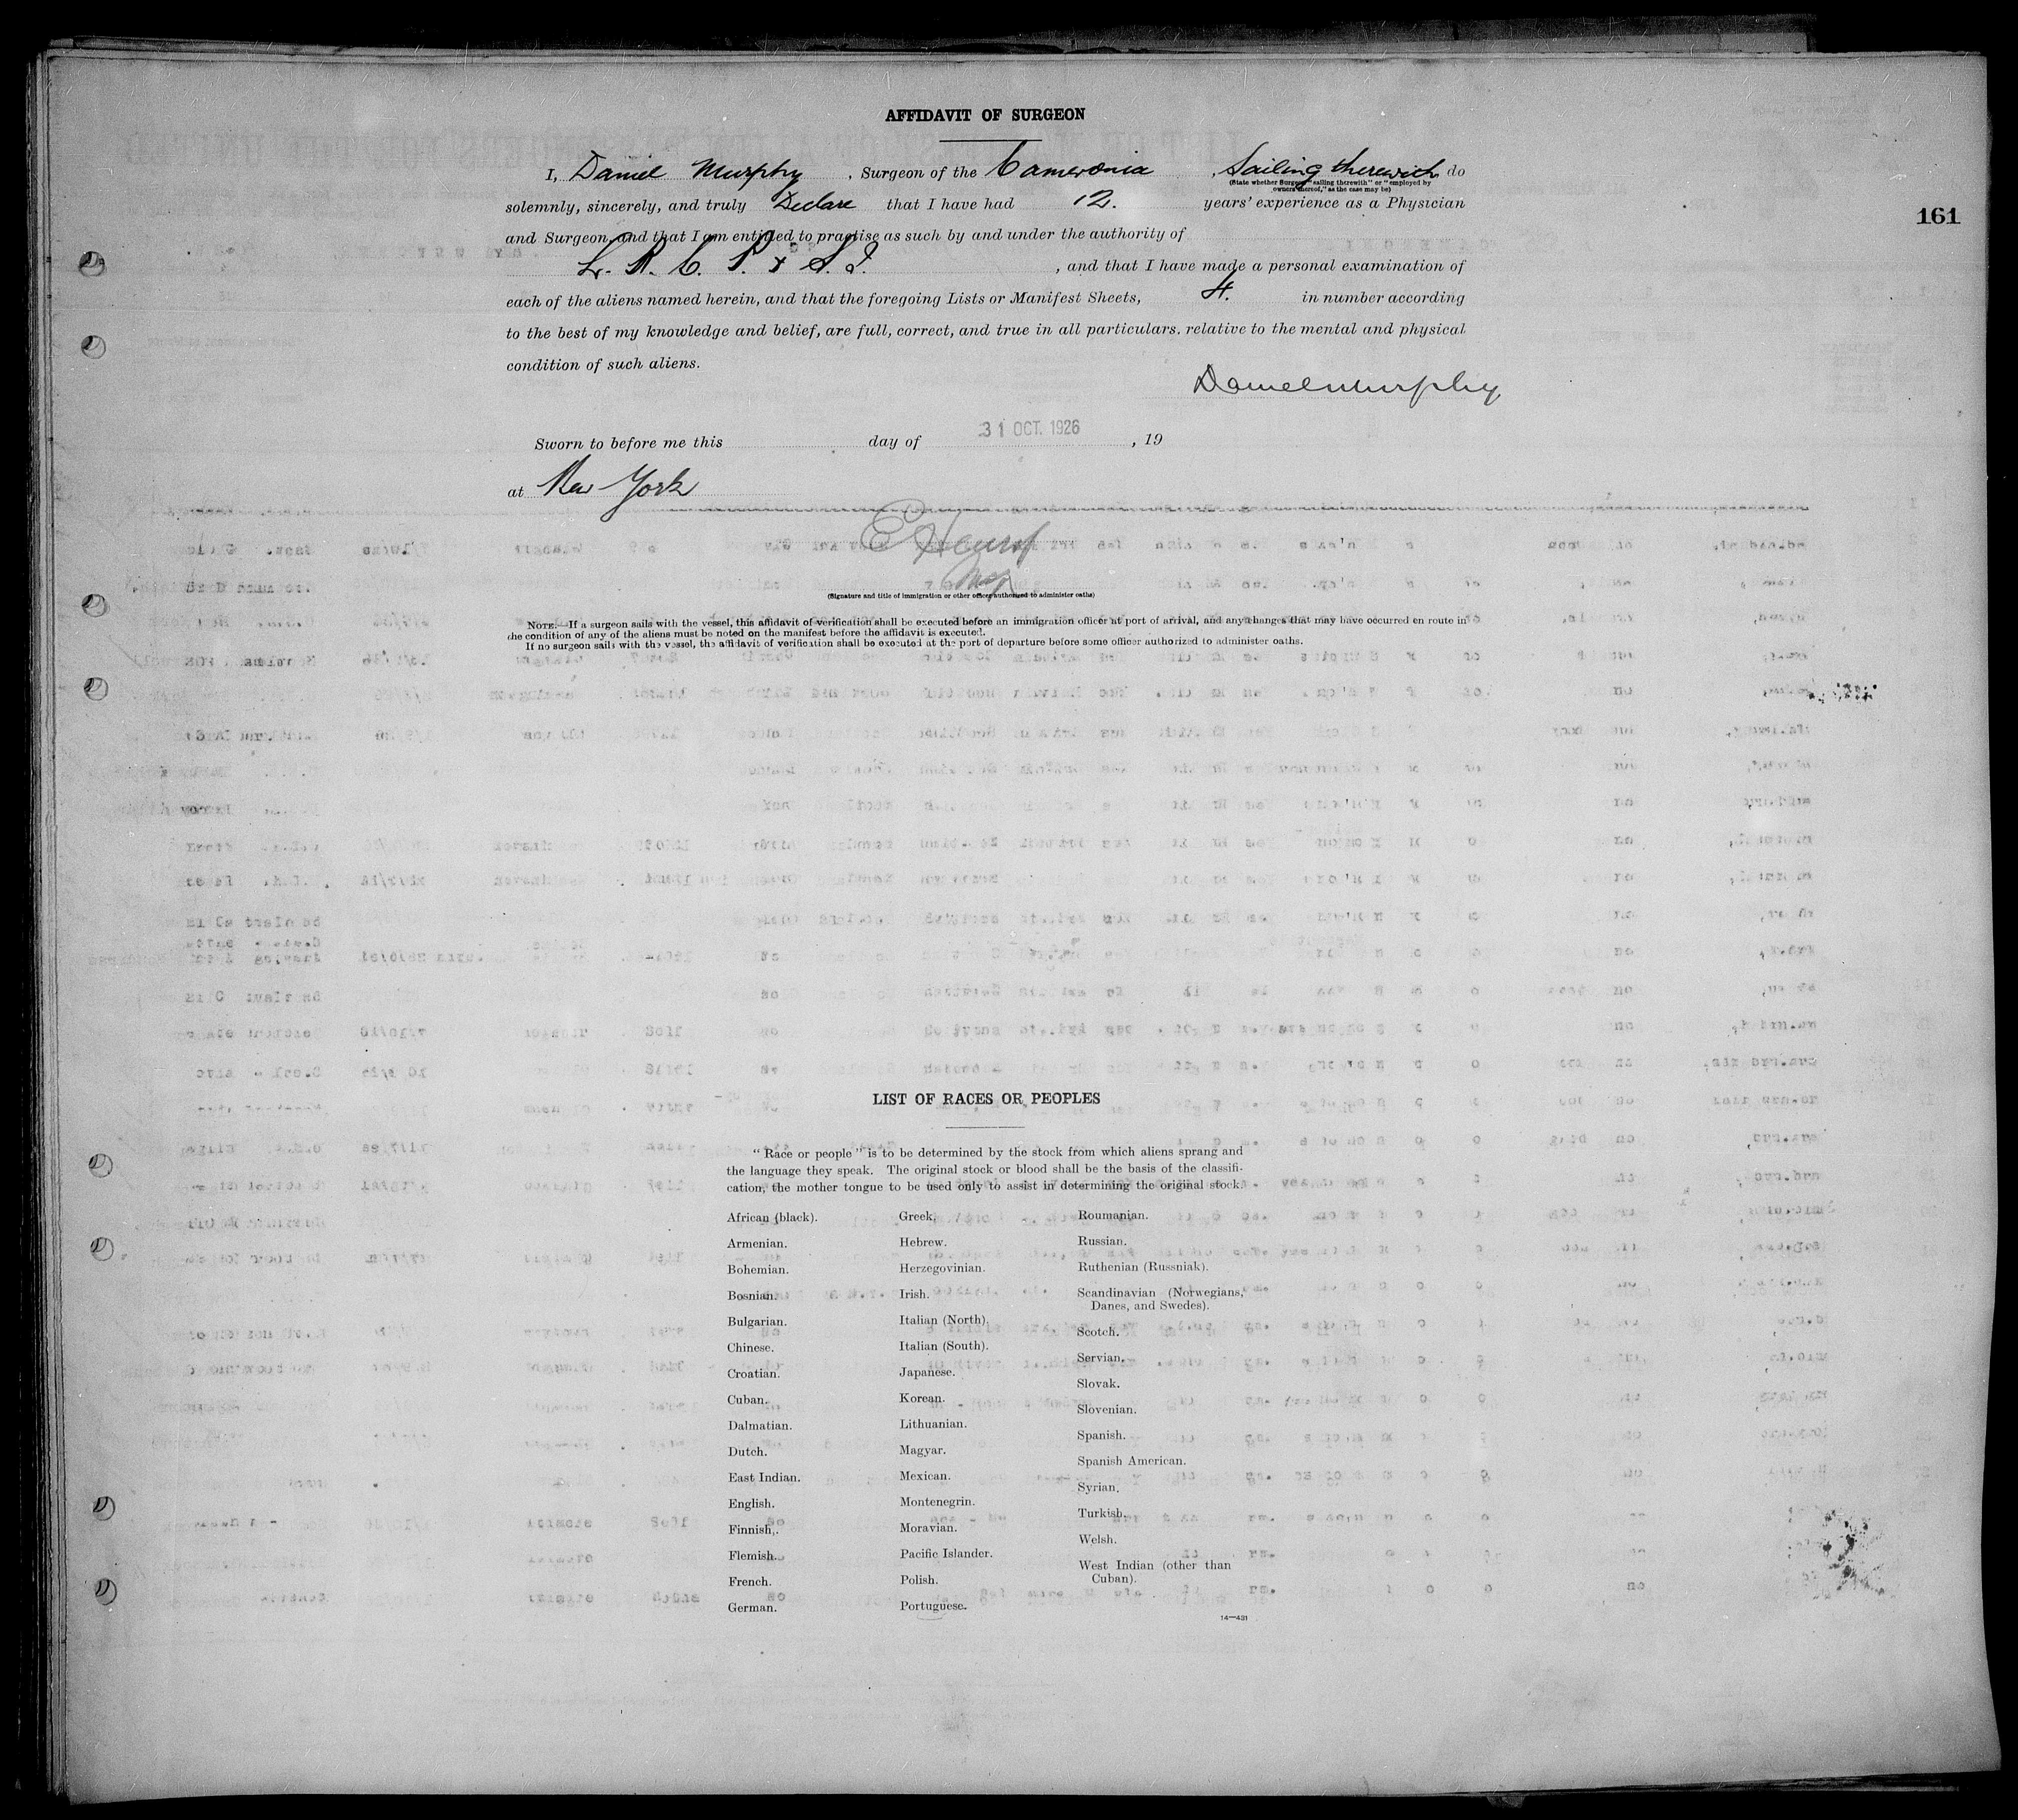 AFFIDAVIT OF SURGEON
I, Daniel Murphy, Surgeon of the Cameronia, Sailing therewith, do
(State whether Surgeon "sailing therewith" or "employed by
owners thereof," as the case may be)
solemnly, sincerely, and truly Declare that I have had 12. years' experience as a Physician
161
and Surgeon, and that I am entitled to practise as such by and under the authority of
L. R. C. P. & S. I., and that I have made a personal examination of
each of the aliens named herein, and that the foregoing Lists or Manifest Sheets, 4. in number according
to the best of my knowledge and belief, are full, correct, and true in all particulars. relative to the mental and physical
condition of such aliens.
Daniel Murphy
Sworn to before me this day of 31 OCT. 1926, 19
at New York
(Signature and title of immigration or other officer authorized to administer oaths)
NOTE.—If a surgeon sails with the vessel, this affidavit of verification shall be executed before an immigration officer at port of arrival, and any changes that may have occurred en route in
the condition of any of the aliens must be noted on the manifest before the affidavit is executed.
If no surgeon sails with the vessel, the affidavit of verification shall be executed at the port of departure before some officer authorized to administer oaths.
LIST OF RACES OR PEOPLES
"Race or people" is to be determined by the stock from which aliens sprang and
the language they speak. The original stock or blood shall be the basis of the classifi-
cation, the mother tongue to be used only to assist in determining the original stock.
African (black).
Armenian.
Bohemian.
Bosnian.
Bulgarian.
Chinese.
Croatian.
Cuban.
Dalmatian.
Dutch.
East Indian.
English.
Finnish.
Flemish.
French.
German.
Greek.
Hebrew.
Herzegovinian.
Irish.
Italian (North).
Italian (South).
Japanese.
Korean.
Lithuanian.
Magyar.
Mexican.
Montenegrin.
Moravian.
Pacific Islander.
Polish.
Portuguese.
Roumanian.
Russian.
Ruthenian (Russniak).
Scandinavian (Norwegians,
Danes, and Swedes).
Scotch.
Servian.
Slovak.
Slovenian.
Spanish.
Spanish American.
Syrian.
Turkish.
Welsh.
West Indian (other than
Cuban).
14—431